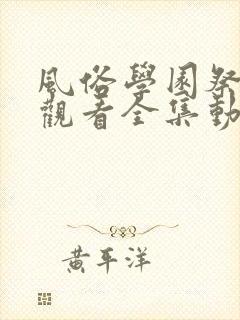 風俗學園祭
觀看全集動
黃平洋